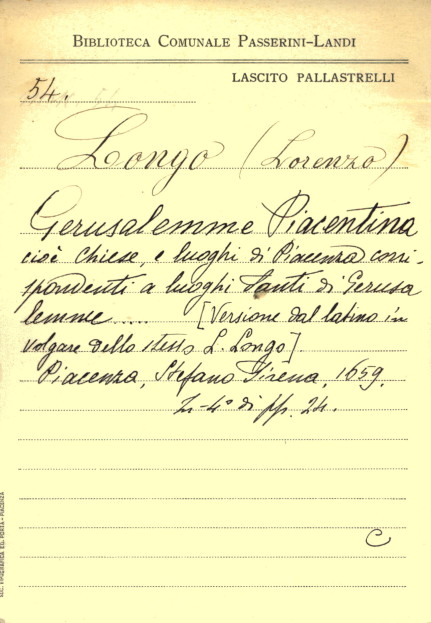 BIBLIOTECA COMUNALE PASSERINI-LANDI
LASCITO PALLASTRELLI
54.
Longo (Lorenzo)
Gerusalemme Piacentina
cioè Chiese, e luoghi di Piacenza corri-
spondenti a luoghi Santi di Gerusa
lemme ..... [Versione dal latino in
volgare dello stesso L. Longo]
Piacenza, Stefano Sirena, 1659.
In-4° di pp. 24.
C